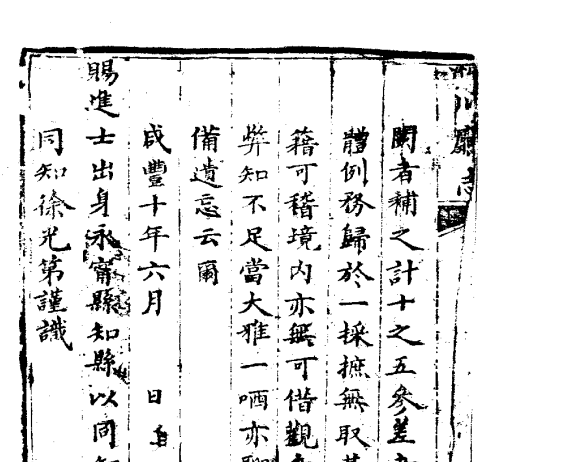 川廳志
闕者補之計十之五參差
體例務歸於一採摭無取
籍可稽境內亦無可借觀
弊知不足當大雅一哂亦聊
備遺忘云爾
咸豐十年六月 日
賜進士出身永甯縣知縣以同知
同知徐光第謹識